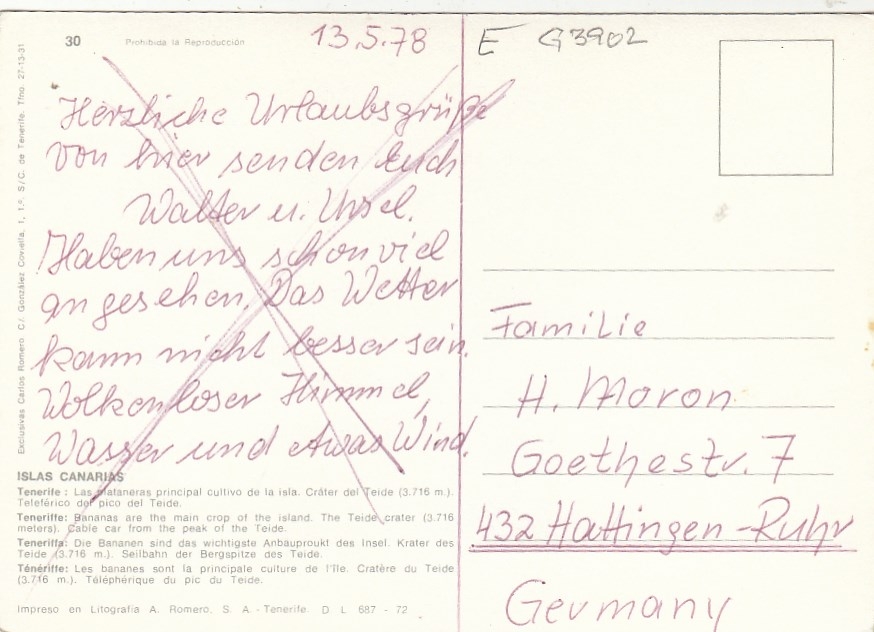 30
Prohibida la Reproducción
13.5.78
E G3902
Herzliche Urlaubsgrüße
von hier senden Euch
Walter u. Ursel.
Haben uns schon viel
angesehen. Das Wetter
kann nicht besser sein.
Wolkenloser Himmel,
Wasser und etwas Wind.
Familie
H. Moron
Goethestr. 7
432 Hattingen-Ruhr
Germany
ISLAS CANARIAS
Tenerife: Las plataneras principal cultivo de la isla. Cráter del Teide (3.716 m.).
Teleférico del pico del Teide.
Teneriffe: Bananas are the main crop of the island. The Teide crater (3.716
meters). Cable car from the peak of the Teide.
Teneriffa: Die Bananen sind das wichtigste Anbauproukt des Insel. Krater des
Teide (3.716 m.). Seilbahn der Bergspitze des Teide.
Ténériffe: Les bananes sont la principale culture de l'île. Cratère du Teide
(3.716 m.). Téléphérique du pic du Teide.
Impreso en Litografía A. Romero, S. A. - Tenerife. D L 687 - 72
Exclusivas Carlos Romero C/. González Coviella, 1, 1.º S/C. de Tenerife. Tfno. 27-13-31